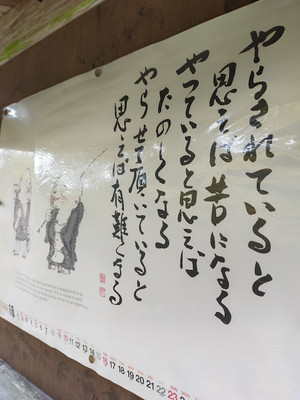 やらされていると
思えば苦になる
やっていると思えば
たのしくなる
やらせて頂いていると
思えば有難くなる
10 11 12 13 14 15 16 17 18 19 20 21 22 23